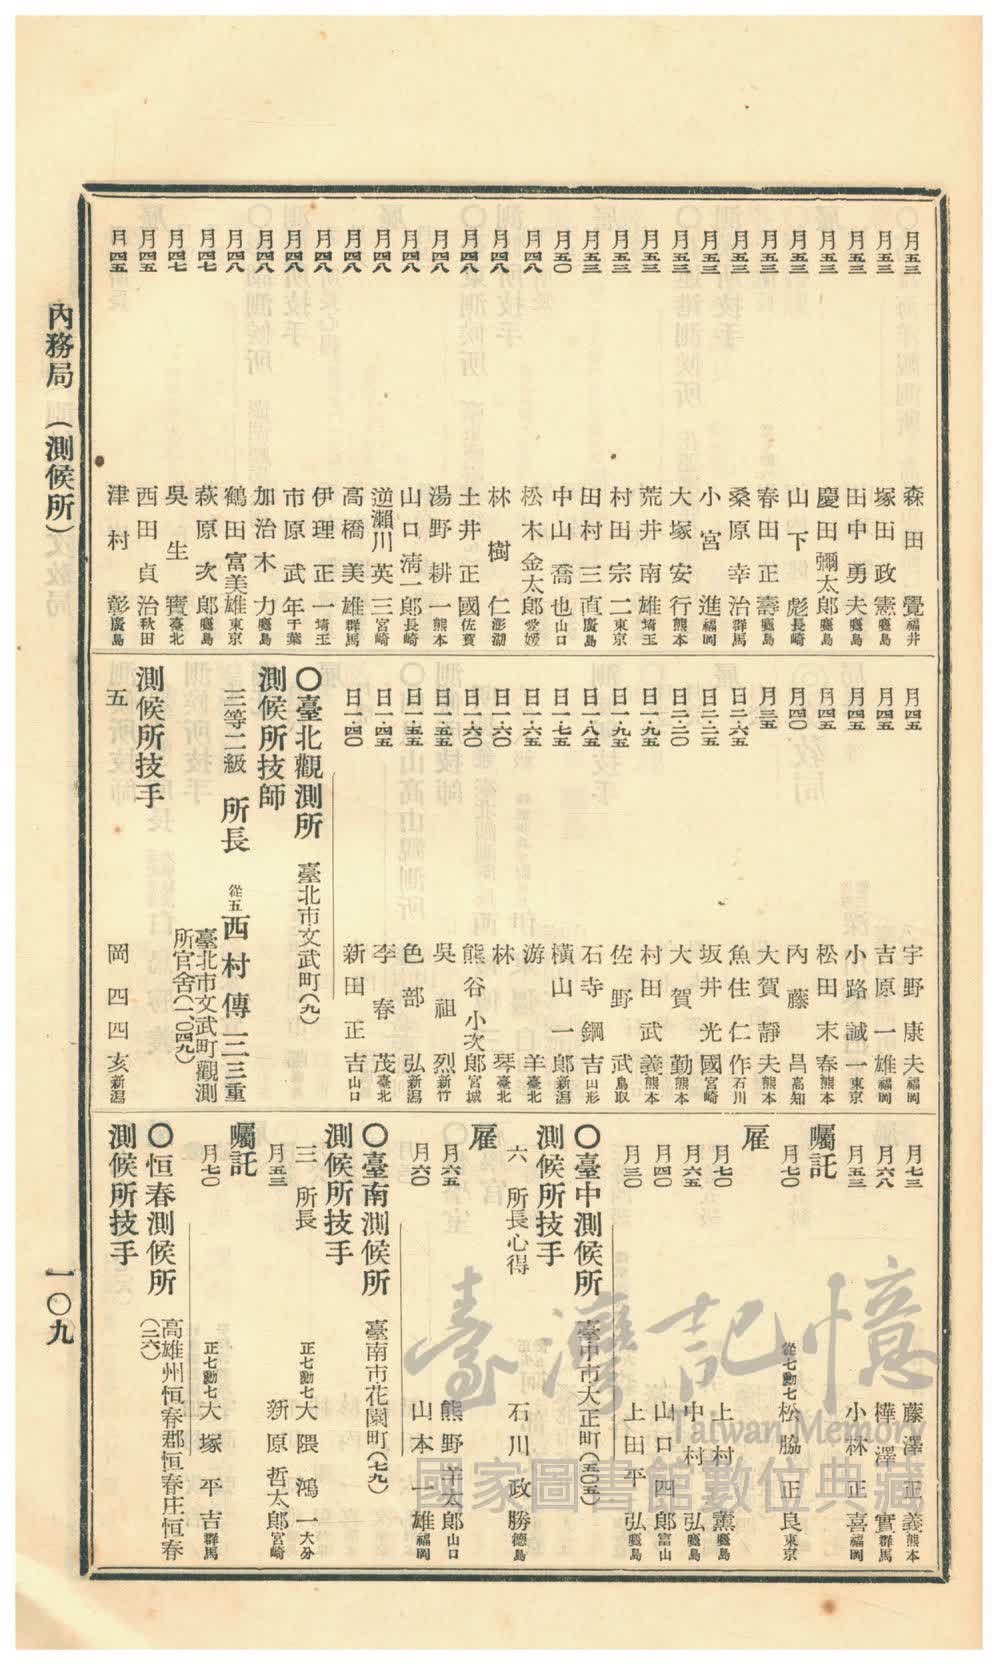 月五三 森田覺 福井
月五三 塚田政憲 麑島
月五三 田中勇夫 麑島
月五三 慶田彌太郎 麑島
月五三 山下彪 長崎
月五三 春田正壽 麑島
月五三 桑原幸治 群馬
月五三 小宮進 福岡
月五三 大塚安行 熊本
月五三 荒井南雄 埼玉
月五三 村田宗二 東京
月五三 田村三直 廣島
月五〇 中山喬也 山口
月四八 松木金太郎 愛媛
月四八 林樹仁 澎湖
月四八 土井正國 佐賀
月四八 湯野耕一 熊本
月四八 山口淸一郎 長崎
月四八 逆瀨川英三 宮崎
月四八 高橋美雄 群馬
月四八 伊理正一 埼玉
月四八 市原武年 千葉
月四八 加治木力 麑島
月四八 鶴田富美雄 東京
月四七 萩原次郎 麑島
月四七 吳生寶 臺北
月四五 西田貞治 秋田
月四五 津村彰 廣島
月四五 宇野康夫 福岡
月四五 吉原一雄 福岡
月四五 小路誠一 東京
月四五 松田末春 熊本
月四〇 內藤昌 高知
月三五 大賀靜夫 熊本
日二・六五 魚住仁作 石川
日二・二五 坂井光國 宮崎
日二・二〇 大賀勤 熊本
日一・九五 村田武義 熊本
日一・九五 佐野武 鳥取
日一・八五 石寺鋼吉 山形
日一・七五 橫山一郎 新潟
日一・六五 游羊 臺北
日一・六〇 林琴 臺北
日一・六〇 熊谷小次郎 宮城
日一・五五 吳祖烈 新竹
日一・五五 色部弘 新潟
日一・四五 李春茂 臺北
日一・四〇 新田正吉 山口
〇臺北觀測所 臺北市文武町(九)
測候所技師
三等二級 所長 從五 西村傳三 三重
臺北市文武町觀測
所官舍(一、〇四九)
測候所技手
五 岡四四亥 新潟
月七三 藤澤正義 熊本
月六八 樺澤實 群馬
月五三 小林正喜 福岡
囑託
月七〇 從七勳七 松脇正良 東京
雇
月七〇 上村薰 麑島
月六五 中村弘 麑島
月四〇 山口四郎 富山
月三〇 上田平弘 麑島
〇臺中測候所 臺中市大正町(五〇五)
測候所技手
六 所長心得 石川政勝 德島
雇
月六五 熊野羊太郎 山口
月六〇 山本一雄 福岡
〇臺南測候所 臺南市花園町(七九)
測候所技手
三 所長 正七勳七 大隈鴻一 大分
月五三 新原哲太郎 宮崎
囑託
月七〇 正七勳七 大塚平吉 群馬
〇恒春測候所 高雄州恒春郡恒春庄恒春
(二六)
測候所技手
內務局(測候所)
一〇九
臺灣記憶
Taiwan Memory
國家圖書館數位典藏